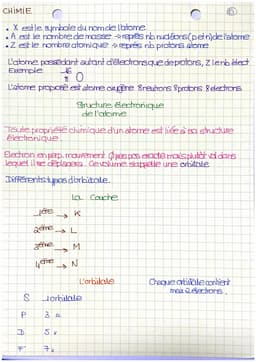 CHIMIE
• X est le symbole du nom de l'atome.
• A est le nombre de masse → représ nb nucléons (p et n) de l'atome
• Z est le nombre atomique → représ nb protons atome
L'atome possédant autant d'électrons que de protons, Z le nb élect
Exemple
16
8 O
L'atome proposé est atome oxygène 8 neutrons 8 protons 8 électrons
Structure électronique
de l'atome
Toute propriété chimique d'un atome est liée à sa structure
électronique.
Electron en perp. mouvement pas exacte mais plutôt vol dans
lequel il se déplacera. Ce volume s'appelle une orbitale
Différents types d'orbitale.
La couche
1ère → K
2ème → L
3ème → M
4ème → N
L'orbitale
Chaque orbitale contient
max 2 électrons.
S 1 orbitale
P 3 "
D 5 "
F 7 "